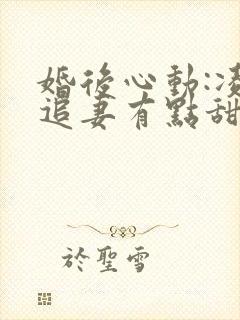 婚後心動:凌
追妻有點甜
於聖雪